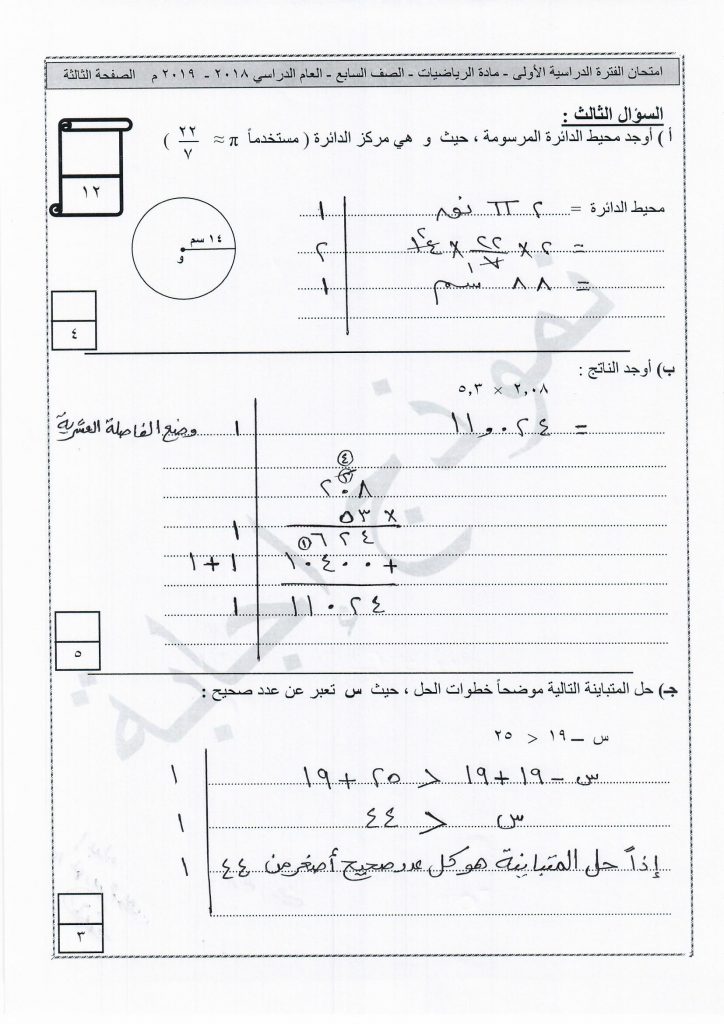 امتحان الفترة الدراسية الأولى - مادة الرياضيات - الصف السابع - العام الدراسي ٢٠١٨ - ٢٠١٩ م الصفحة الثالثة
السؤال الثالث :
١٢
أ ) أوجد محيط الدائرة المرسومة ، حيث و هي مركز الدائرة ( مستخدماً π ≈ ٢٢/٧ )
محيط الدائرة = ٢ π نق ١
= ٢ × ٢٢/٧ × ١٤ ٢
٢
١
= ٨٨ سم ١
١٤ سم
و
٤
ب) أوجد الناتج :
٢,٠٨ × ٥,٣
= ١١,٠٢٤ ١ وضع الفاصلة العشرية
٤
٢
٢٠٨
× ٥٣
١ ٦٢٤ ١
+ ١٠٤٠٠ ١ + ١
١١٠٢٤ ١
٥
جـ) حل المتباينة التالية موضحاً خطوات الحل ، حيث س تعبر عن عدد صحيح :
س – ١٩ < ٢٥
س - ١٩ + ١٩ < ٢٥ + ١٩ ١
س < ٤٤ ١
إذاً حل المتباينة هو كل عدد صحيح أصغر من ٤٤ ١
٣
نموذج إجابة